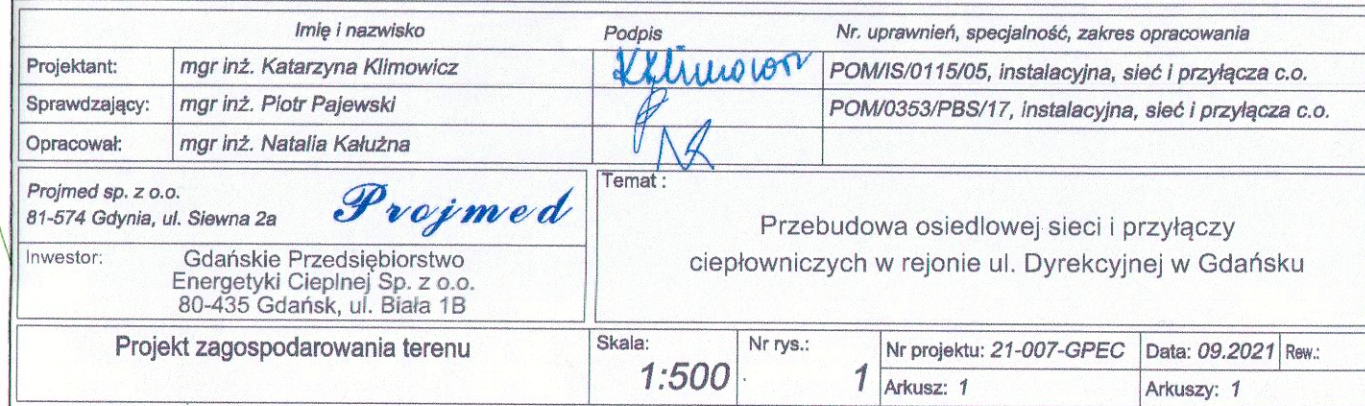 Imię i nazwisko Podpis Nr. uprawnień, specjalność, zakres opracowania
Projektant: mgr inż. Katarzyna Klimowicz KKlimowicz POM/IS/0115/05, instalacyjna, sieć i przyłącza c.o.
Sprawdzający: mgr inż. Piotr Pajewski POM/0353/PBS/17, instalacyjna, sieć i przyłącza c.o.
Opracował: mgr inż. Natalia Kałużna
Projmed sp. z o.o.
81-574 Gdynia, ul. Siewna 2a
Projmed
Inwestor: Gdańskie Przedsiębiorstwo
Energetyki Cieplnej Sp. z o.o.
80-435 Gdańsk, ul. Biała 1B
Temat :
Przebudowa osiedlowej sieci i przyłączy
ciepłowniczych w rejonie ul. Dyrekcyjnej w Gdańsku
Projekt zagospodarowania terenu
Skala:
1:500
Nr rys.:
1
Nr projektu: 21-007-GPEC Data: 09.2021 Rew.:
Arkusz: 1 Arkuszy: 1